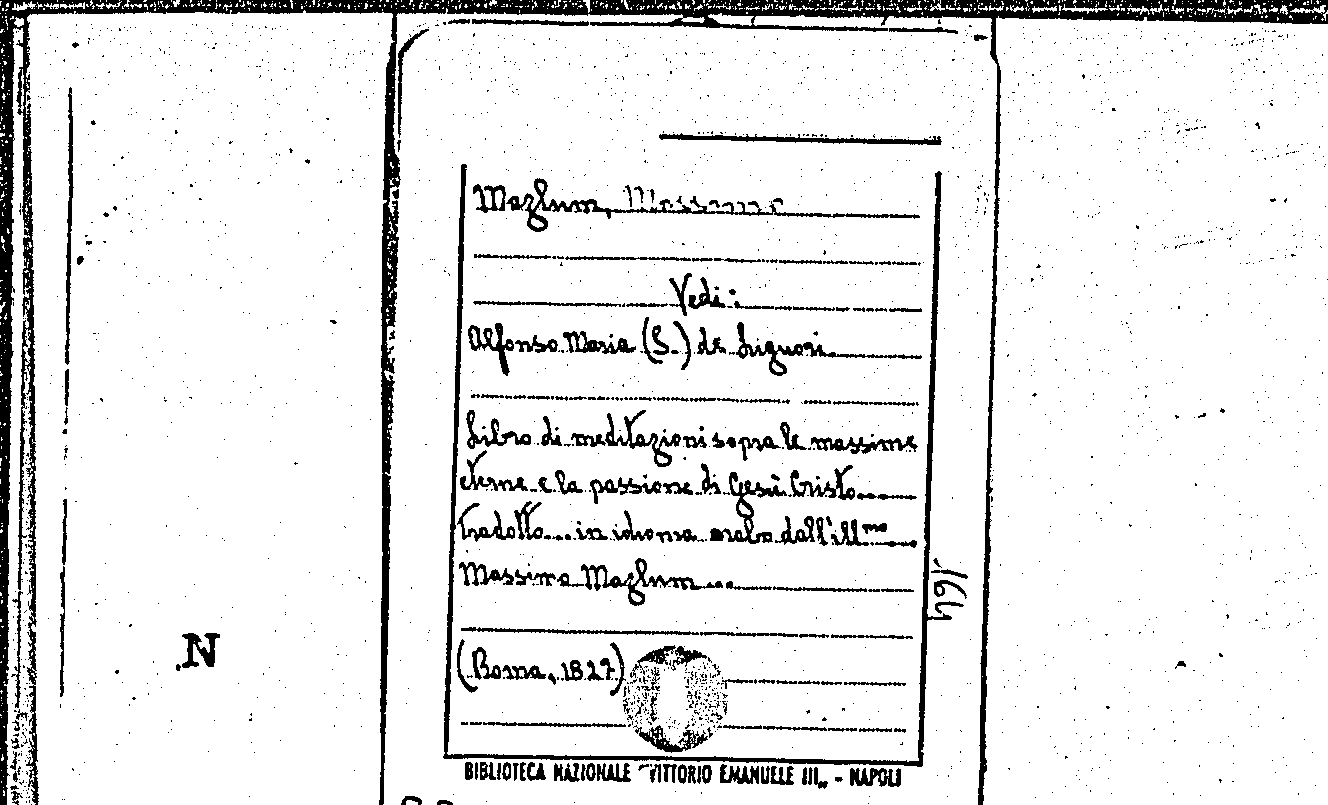 Mazlum, Massimo
Vedi:
Alfonso Maria (S.) de Liguori.
Libro di meditazioni sopra le massime
eterne e la passione di Gesù Cristo....
tradotto... in idioma arabo dall'ill.mo
Massimo Mazlum...
(Roma, 1827)
164
N
BIBLIOTECA NAZIONALE "VITTORIO EMANUELE III„ - NAPOLI